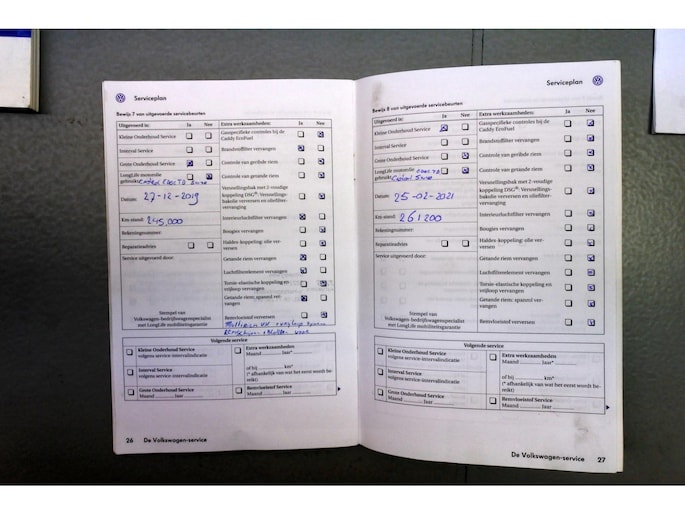 Serviceplan
Bewijs 7 van uitgevoerde servicebeurten
Uitgevoerd is: Ja Nee Extra werkzaamheden: Ja Nee
Kleine Onderhoud Service
Gasspecifieke controles bij de Caddy EcoFuel
Interval Service
Brandstoffilter vervangen
Grote Onderhoud Service
Controle van geribde riem
LongLife motorolie gebruikt
Controle van getande riem
Datum: 27-12-2019
Versnellingsbak met 2-voudige
koppeling DSG®: Versnellings-
bakolie verversen en oliefilter-
vervanging
Km-stand: 245,000
Interieurluchtfilter vervangen
Rekeningnummer:
Bougies vervangen
Reparatieadvies
Haldex-koppeling: olie ver-
versen
Service uitgevoerd door:
Getande riem vervangen
Luchtfilterelement vervangen
Torsie-elastische koppeling en
vrijloop vervangen
Getande riem; spanrol vervan-
gen
Stempel van
Volkswagen-bedrijfswagenspecialist
met LongLife mobiliteitsgarantie
Remvloeistof verversen
Volgende service
Kleine Onderhoud Service
volgens service-intervalindicatie
Extra werkzaamheden
Maand jaar*
Interval Service
volgens service-intervalindicatie
of bij km*
(* afhankelijk van wat het eerst wordt be-
reikt)
Grote Onderhoud Service
Maand jaar
Remvloeistof Service
Maand jaar
26 De Volkswagen-service
Serviceplan
Bewijs 8 van uitgevoerde servicebeurten
Uitgevoerd is: Ja Nee Extra werkzaamheden: Ja Nee
Kleine Onderhoud Service
Gasspecifieke controles bij de
Caddy EcoFuel
Interval Service
Brandstoffilter vervangen
Grote Onderhoud Service
Controle van geribde riem
LongLife motorolie
gebruikt
Controle van getande riem
Datum: 25-02-2021
Versnellingsbak met 2-voudige
koppeling DSG®: Versnellings-
bakolie verversen en oliefilter-
vervanging
Km-stand: 261200
Interieurluchtfilter vervangen
Rekeningnummer:
Bougies vervangen
Reparatieadvies
Haldex-koppeling: olie ver-
versen
Service uitgevoerd door:
Getande riem vervangen
Luchtfilterelement vervangen
Torsie-elastische koppeling en
vrijloop vervangen
Getande riem: spanrol vervan-
gen
Stempel van
Volkswagen-bedrijfswagenspecialist
met LongLife mobiliteitsgarantie
Remvloeistof verversen
Volgende service
Kleine Onderhoud Service
volgens service-intervalindicatie
Extra werkzaamheden
Maand jaar*
Interval Service
volgens service-intervalindicatie
of bij km*
(* afhankelijk van wat het eerst wordt be-
reikt)
Grote Onderhoud Service
Maand jaar
Remvloeistof Service
Maand jaar
De Volkswagen-service 27